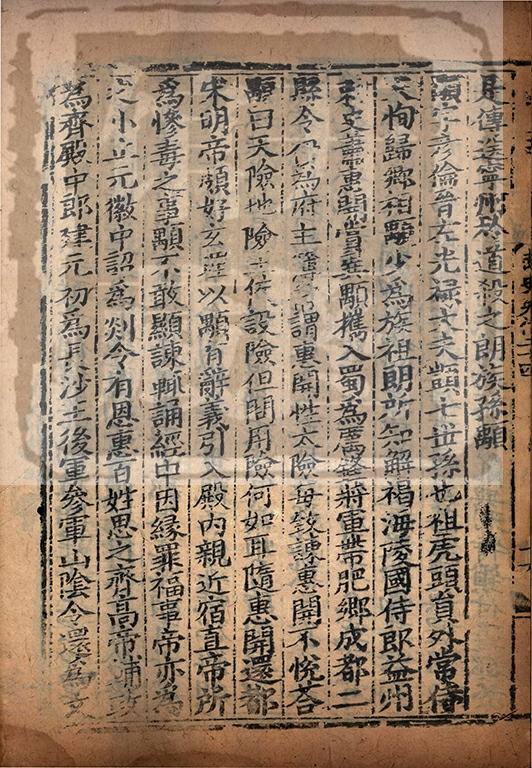 具傳送寧州於道殺之朗族孫顒
顒字彥倫晉左光祿大夫顗七世孫也祖虎頭員外常侍
父恂歸鄉相顒少為族祖朗所知解褐海陵國侍郎益州
刺史蕭惠開賞異顒攜入蜀為厲鋒將軍帶肥鄉成都二
縣令仍為府主簿常謂惠開性太險每致諫惠開不悅荅
顒曰天險地險王侯設險但問用險何如耳隨惠開還都
宋明帝頗好玄理以顒有辭義引入殿內親近宿直帝所
為慘毒之事顒不敢顯諫輒誦經中因緣罪福事帝亦為
之小止元徽中詔為剡令有恩惠百姓思之齊高帝輔政
為齊殿中郎建元初為長沙王後軍參軍山陰令還為文